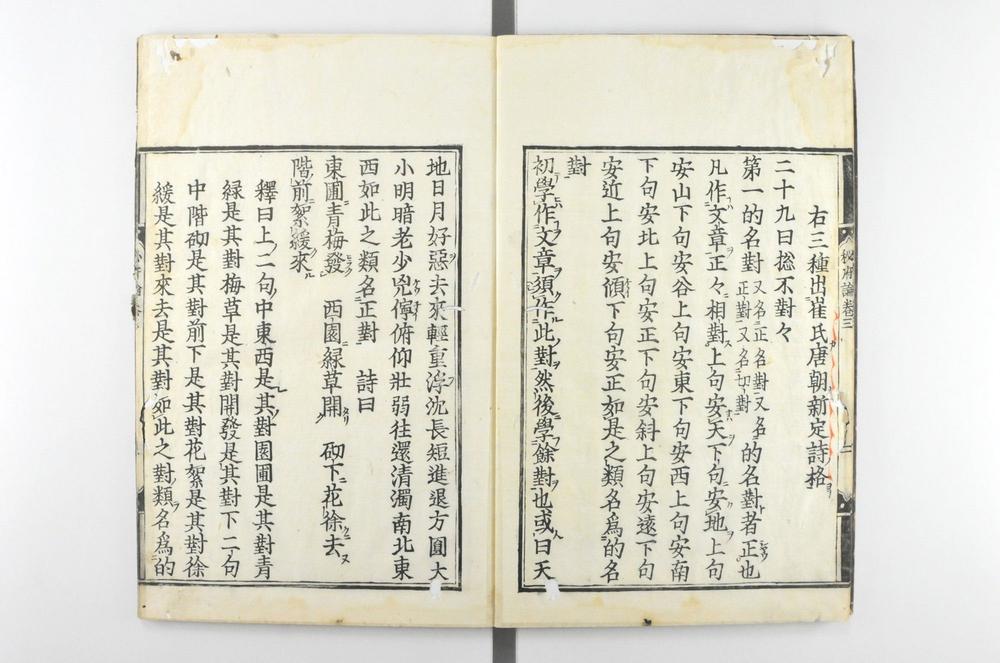 右三種出崔氏唐朝新定詩格
二十九曰捴不對々
第一的名對 又名正名對又名正對又名切對 的名對者正也
凡作文章正々相對上句安天下句安地上句
安山下句安谷上句安東下句安西上句安南
下句安北上句安正下句安斜上句安遠下句
安近上句安傾下句安正如是之類名爲的名
對
初學作文章須作此對然後學餘對也或曰天
地日月好惡去來輕重浮沈長短進退方圓大
小明暗老少兇儜俯仰壯弱往還清濁南北東
西如此之類名正對 詩曰
東圃青梅發 西園緑草開 砌下花徐去
階前絮緩來
釋曰上二句中東西是其對園圃是其對青
緑是其對梅草是其對開發是其對下二句
中階砌是其對前下是其對花絮是其對徐
緩是其對來去是其對如此之對類名爲的
秘府論卷三